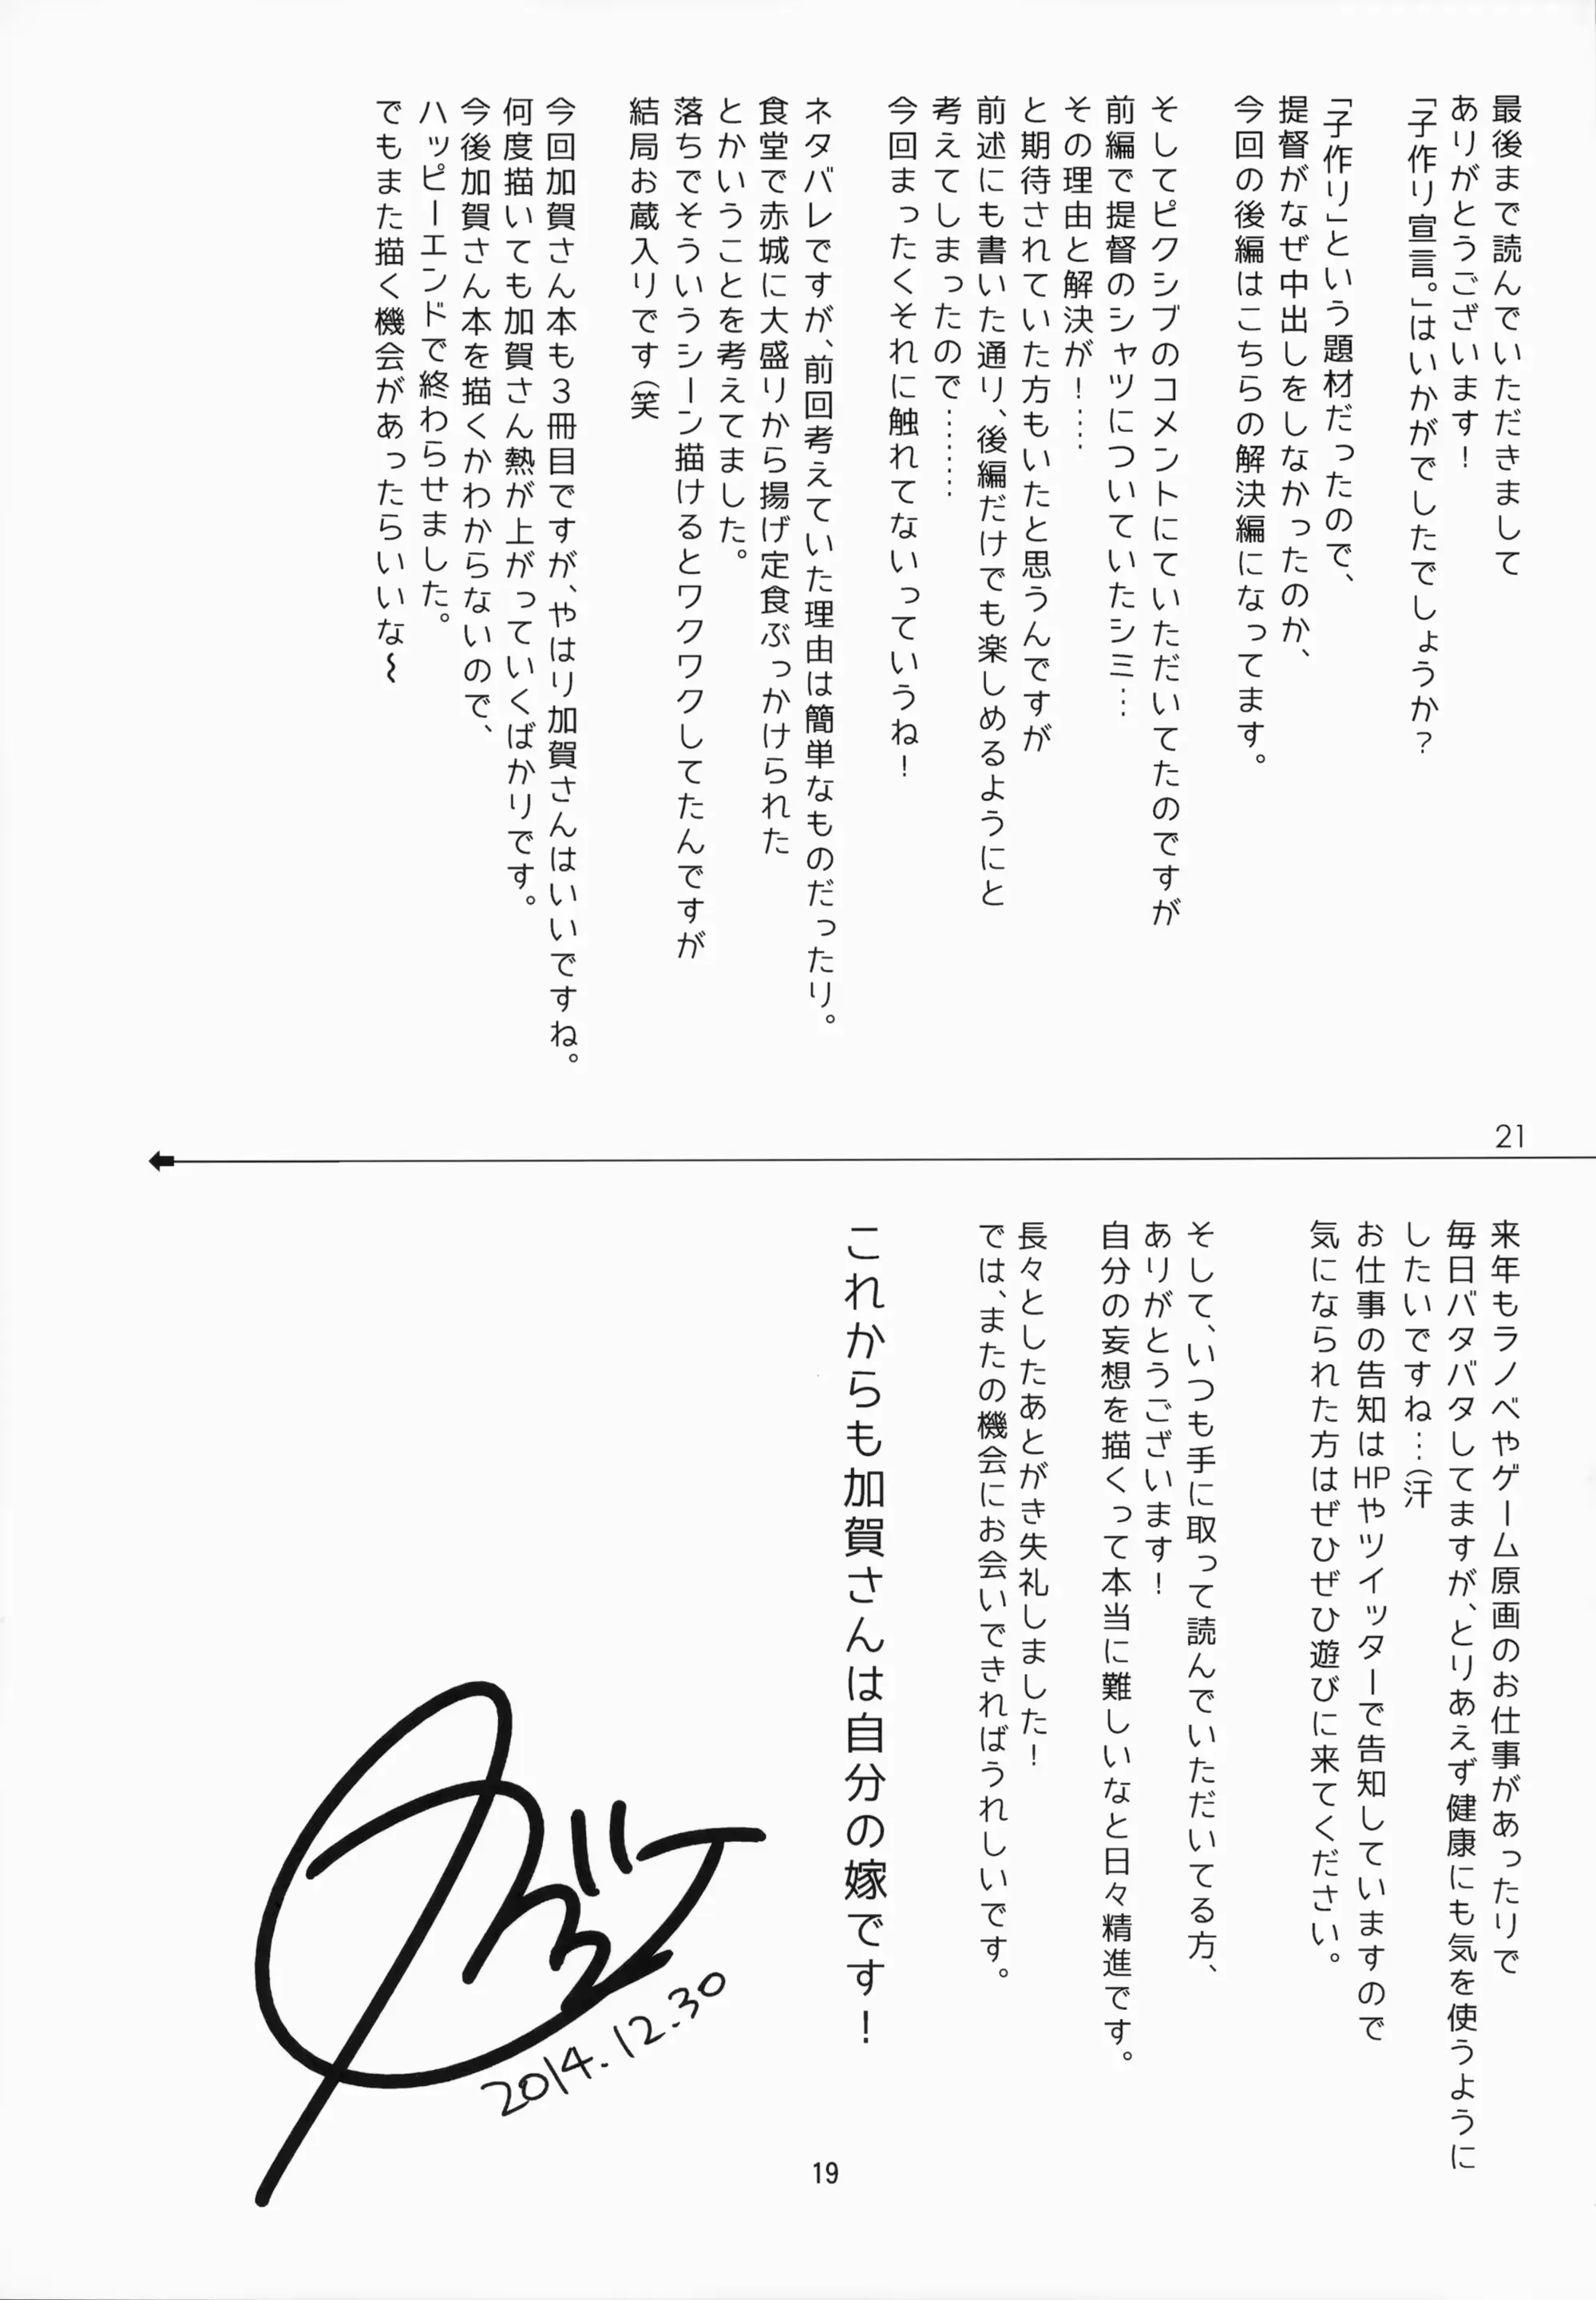 最後まで読んでいただきまして
ありがとうございます！
「子作り宣言。」はいかがでしたでしょうか？
「子作り」という題材だったので、
提督がなぜ中出しをしなかったのか、
今回の後編はこちらの解決編になってます。
そしてピクシブのコメントにていただいてたのですが
前編で提督のシャツについていたシミ…
その理由と解決が！……
と期待されていた方もいたと思うんですが
前述にも書いた通り、後編だけでも楽しめるようにと
考えてしまったので………
今回まったくそれに触れてないっていうね！
ネタバレですが、前回考えていた理由は簡単なものだったり。
食堂で赤城に大盛りから揚げ定食ぶっかけられた
とかいうことを考えてました。
落ちでそういうシーン描けるとワクワクしてたんですが
結局お蔵入りです（笑
今回加賀さん本も３冊目ですが、やはり加賀さんはいいですね。
何度描いても加賀さん熱が上がっていくばかりです。
今後加賀さん本を描くかわからないので、
ハッピーエンドで終わらせました。
でもまた描く機会があったらいいな〜
21
来年もラノベやゲーム原画のお仕事があったりで
毎日バタバタしてますが、とりあえず健康にも気を使うように
したいですね…（汗
お仕事の告知はHPやツイッターで告知していますので
気になられた方はぜひぜひ遊びに来てください。
そして、いつも手に取って読んでいただいてる方、
ありがとうございます！
自分の妄想を描くって本当に難しいなと日々精進です。
長々としたあとがき失礼しました！
では、またの機会にお会いできればうれしいです。
これからも加賀さんは自分の嫁です！
2014.12.30
19